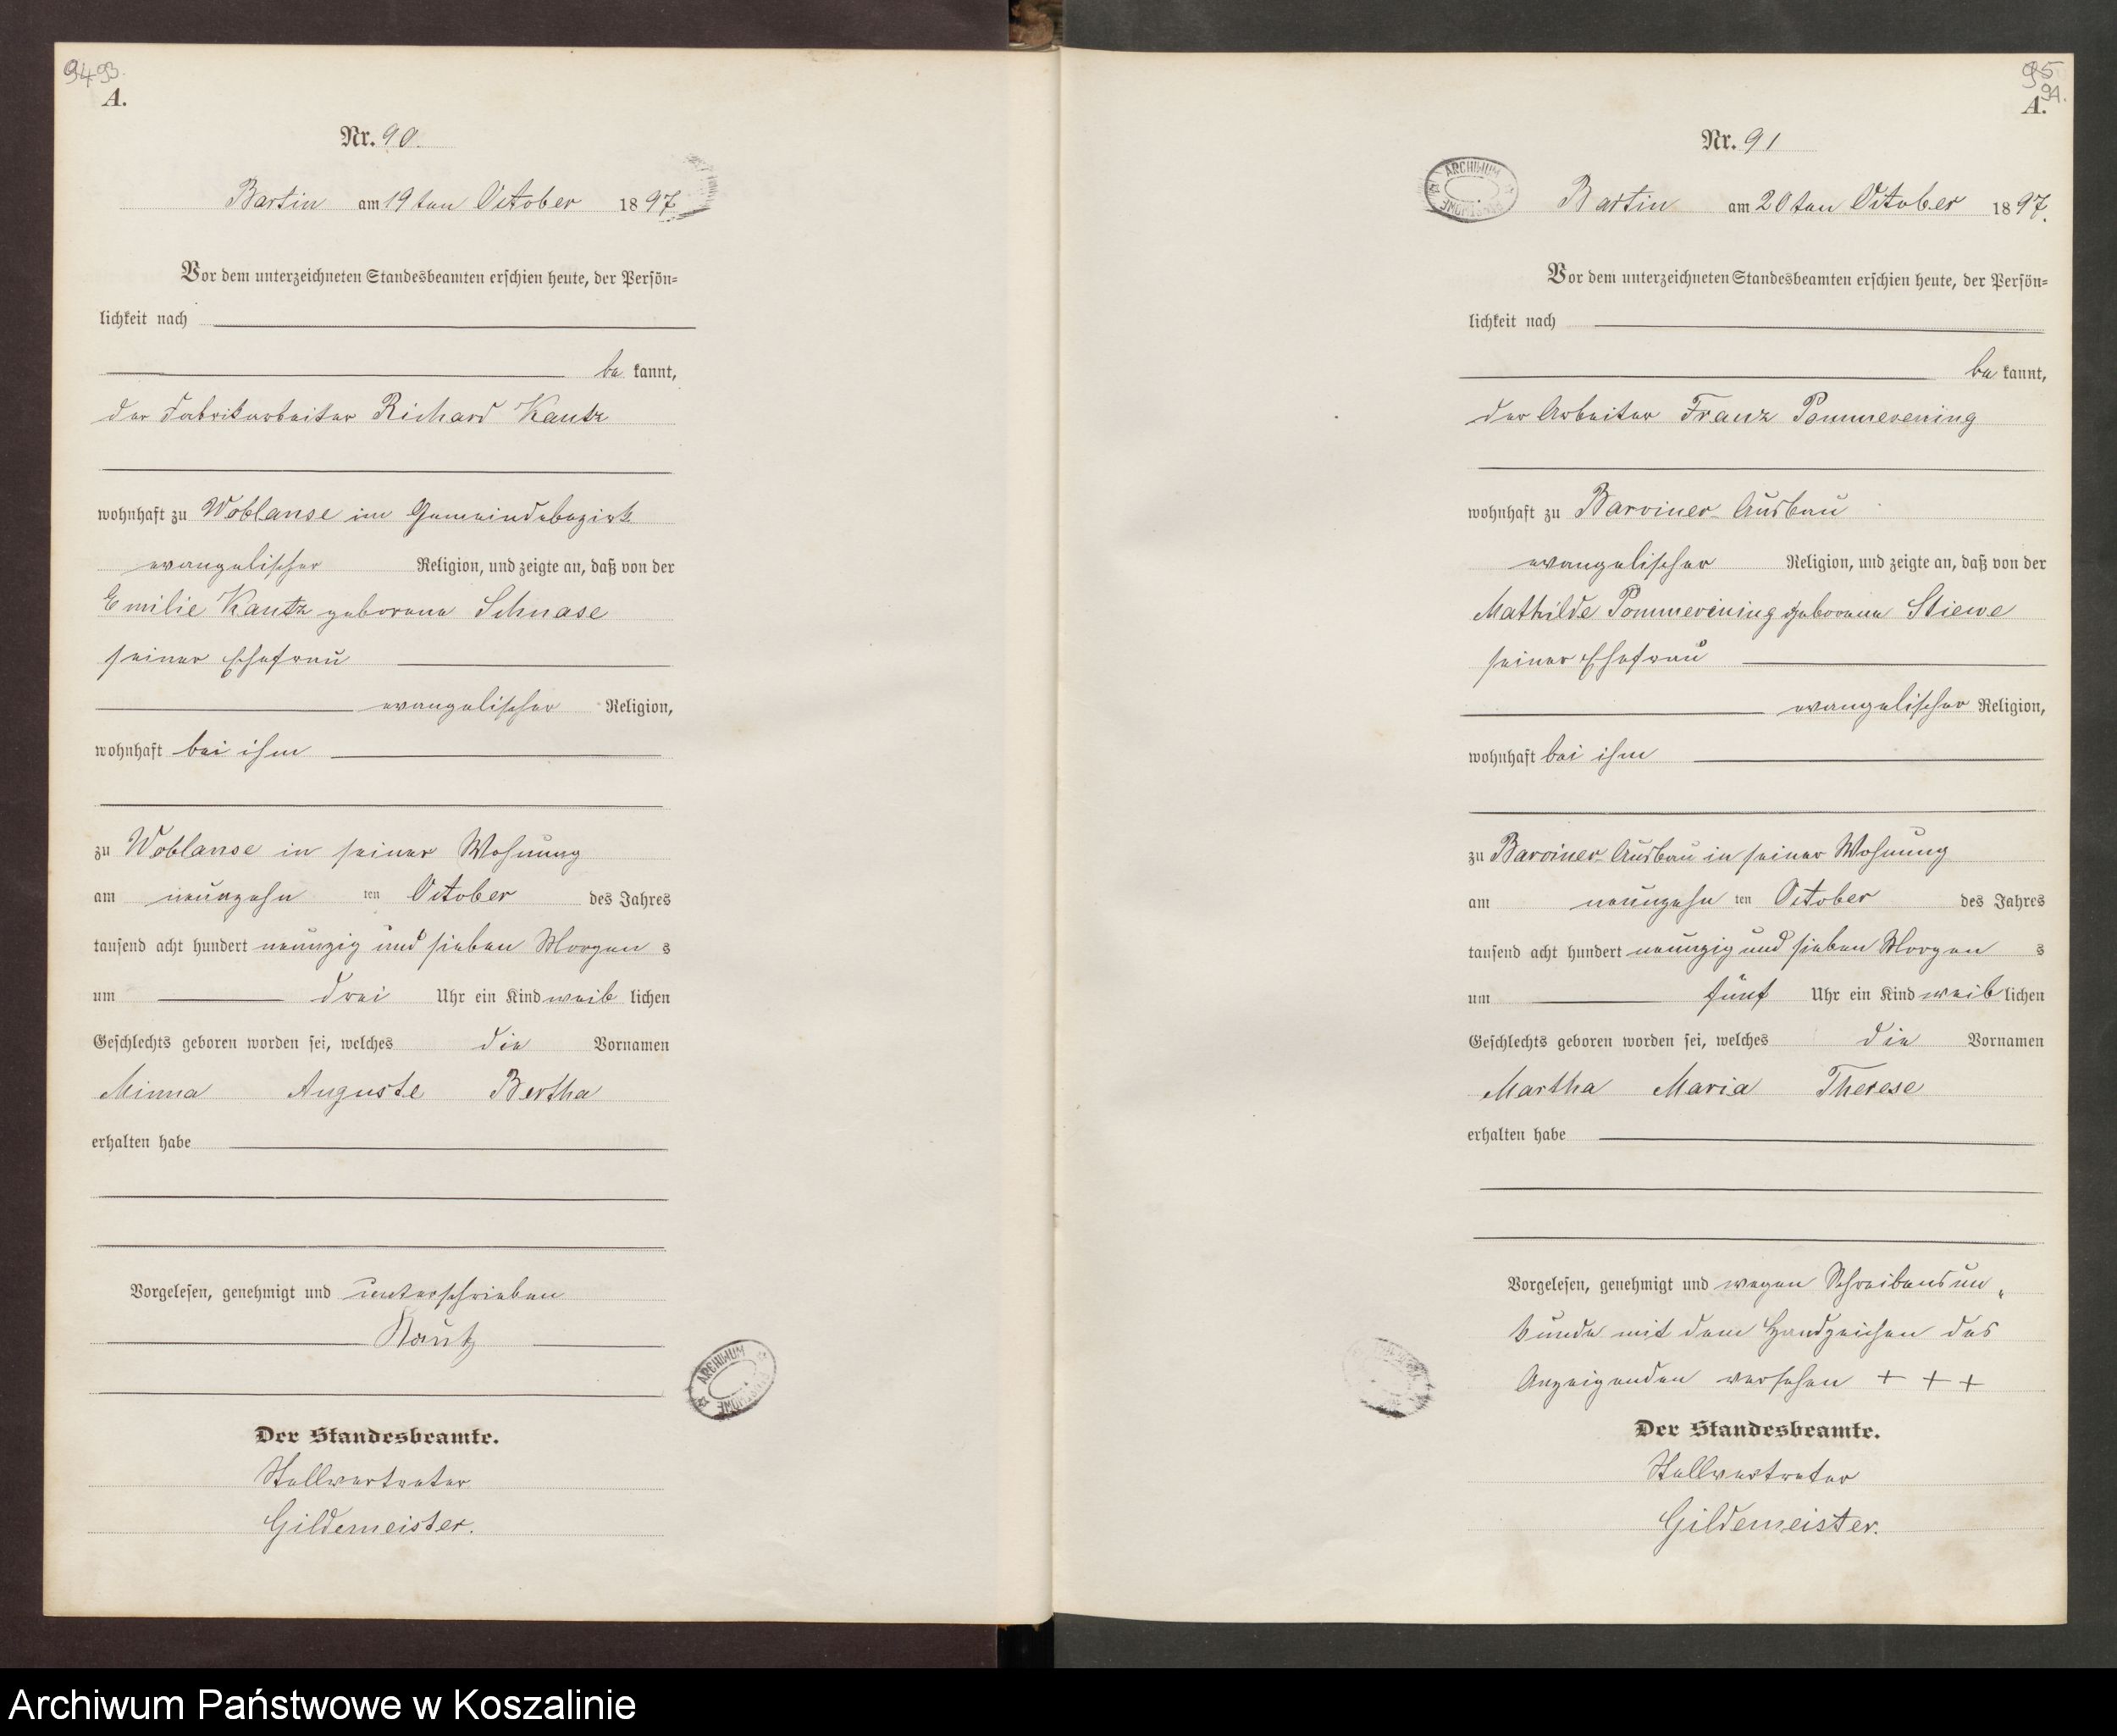 94 93.
A.
Nr. 90.
Bartin am 19ten October 1897
Vor dem unterzeichneten Standesbeamten erschien heute, der Persön=
lichkeit nach
be kannt,
der Fabrikarbeiter Richard Kautz
wohnhaft zu Woblanse im Gemeindebezirk
evangelischer Religion, und zeigte an, daß von der
Emilie Kautz geborene Schnase
seiner Ehefrau
evangelischer Religion,
wohnhaft bei ihm
zu Woblanse in seiner Wohnung
am neunzehn ten October des Jahres
tausend acht hundert neunzig und sieben Morgen s
um drei Uhr ein Kind weib lichen
Geschlechts geboren worden sei, welches die Vornamen
Minna Auguste Bertha
erhalten habe
Vorgelesen, genehmigt und unterschrieben
Kautz
ARCHIWUM
Der Standesbeamte.
Stellvertreter
Gildemeister.
95
94.
A.
Nr. 91
ARCHIWUM
Bartin am 20ten October 1897.
Vor dem unterzeichneten Standesbeamten erschien heute, der Persön=
lichkeit nach
be kannt,
der Arbeiter Franz Pommerening
wohnhaft zu Barviner Ausbau
evangelischer Religion, und zeigte an, daß von der
Mathilde Pommerening geborene Stiewe
seiner Ehefrau
evangelischer Religion,
wohnhaft bei ihm
zu Barviner Ausbau in seiner Wohnung
am neunzehn ten October des Jahres
tausend acht hundert neunzig und sieben Morgen s
um fünf Uhr ein Kind weib lichen
Geschlechts geboren worden sei, welches die Vornamen
Martha Maria Therese
erhalten habe
Vorgelesen, genehmigt und wegen Schreibensun„
kunde mit dem Handzeichen des
Anzeigenden versehen + + +
Der Standesbeamte.
Stellvertreter
Gildemeister.
Archiwum Państwowe w Koszalinie